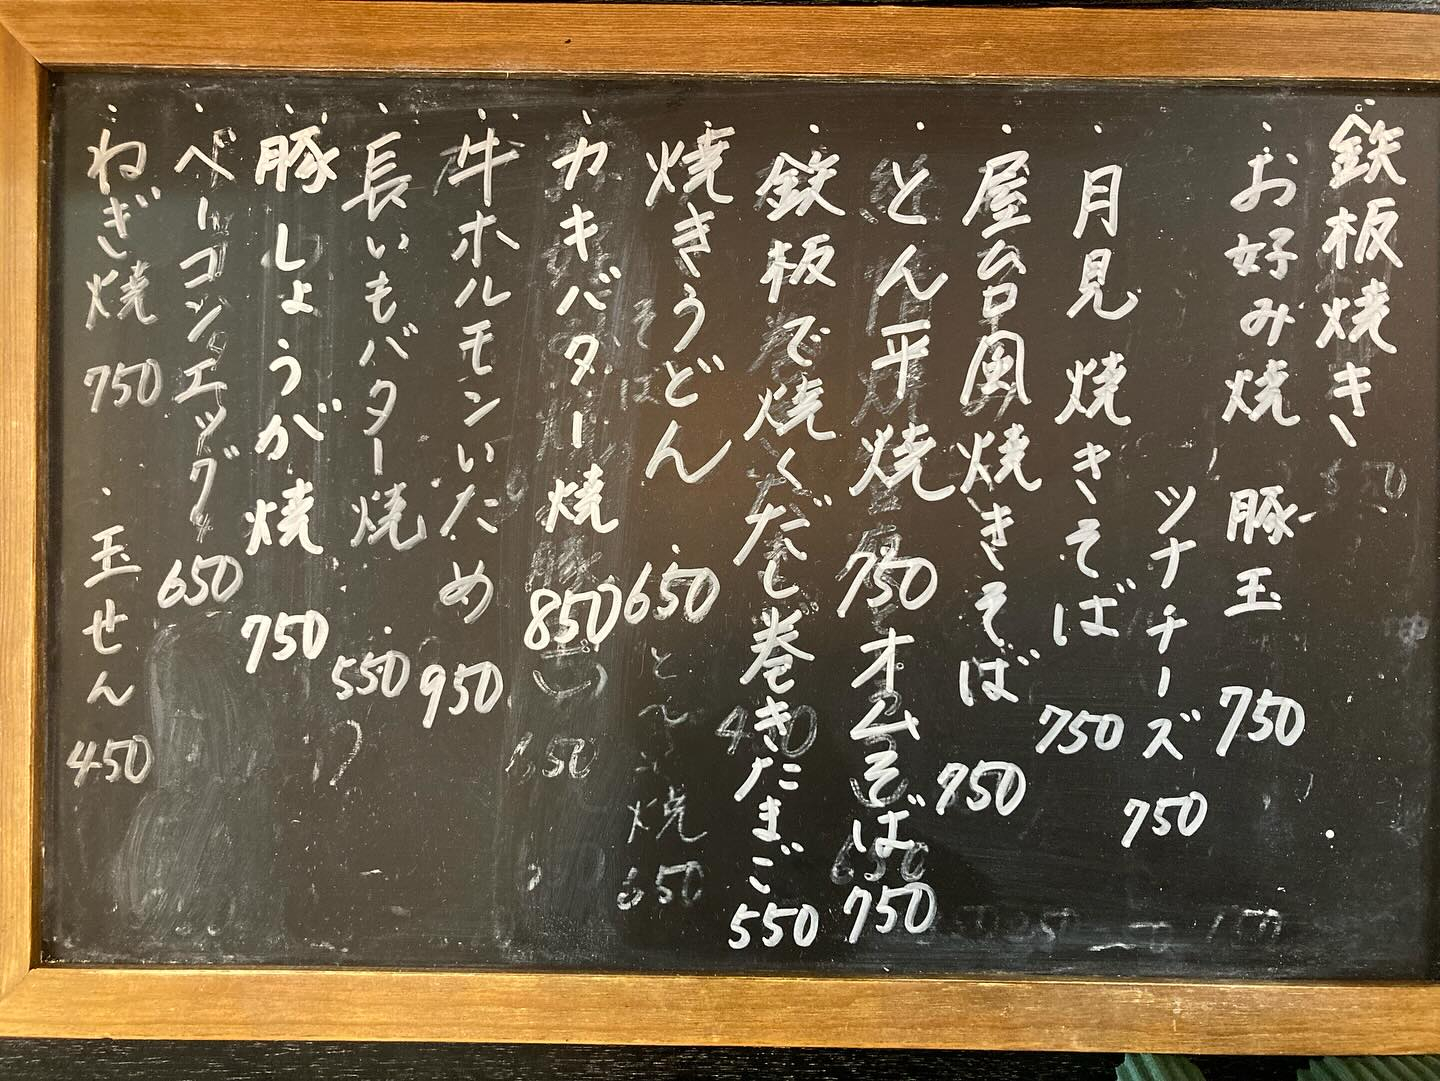 鉄板焼き
お好み焼 豚玉 750
ツナチーズ 750
月見焼きそば 750
屋台風焼きそば 750
とん平焼 750
オムそば 750
鉄板で焼くだし巻きたまご 550
焼きうどん 650
カキバター焼 850
牛ホルモンいため 950
長いもバター焼 550
豚しょうが焼 750
ベーコンエッグ 650
ねぎ焼 750
玉せん 450